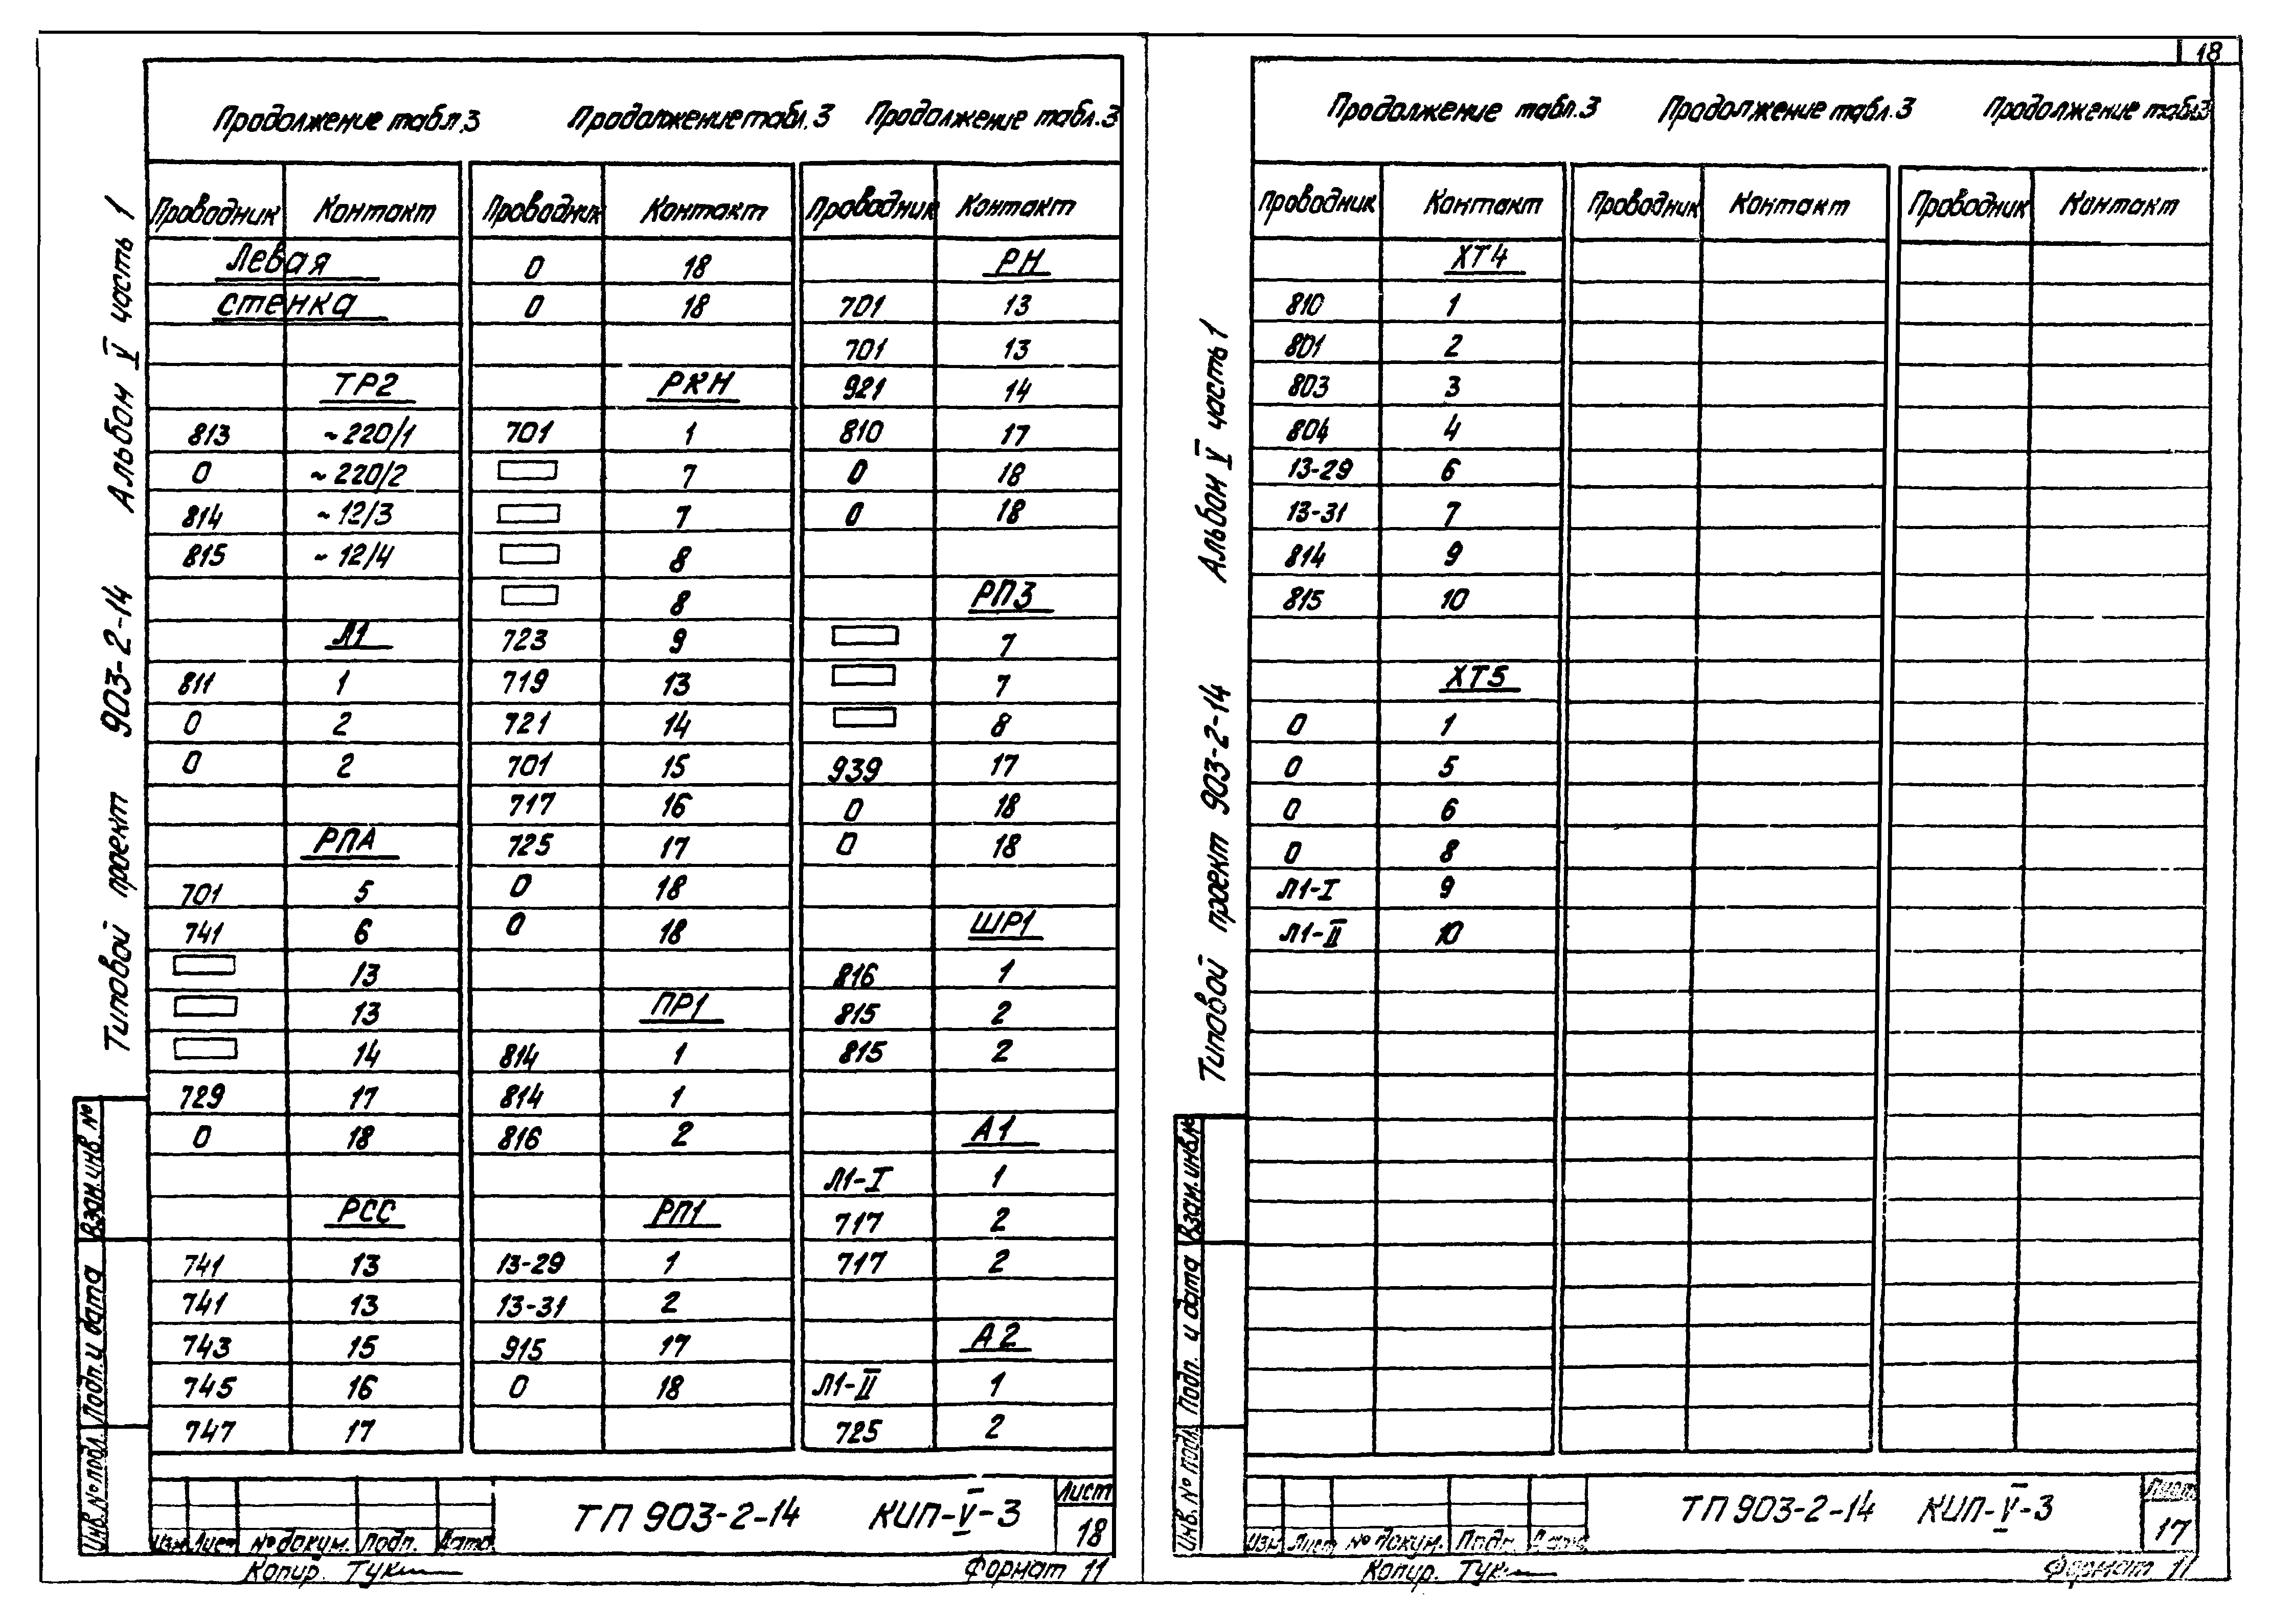 18
Типовой проект 903-2-14 Альбом V часть 1
Продолжение табл.3
Проводник Контакт
Левая
стенка
ТР2
813 ~220/1
0 ~220/2
814 ~12/3
815 ~12/4
Л1
811 1
0 2
0 2
РПА
701 5
741 6
13
13
14
729 17
0 18
РСС
741 13
741 13
743 15
745 16
747 17
Продолжение табл.3
Проводник Контакт
0 18
0 18
РКН
701 1
7
7
8
8
723 9
719 13
721 14
701 15
717 16
725 17
0 18
0 18
ПР1
814 1
814 1
816 2
РП1
13-29 1
13-31 2
915 17
0 18
Продолжение табл.3
Проводник Контакт
РН
701 13
701 13
921 14
810 17
0 18
0 18
РП3
7
7
8
939 17
0 18
0 18
ШР1
816 1
815 2
815 2
А1
Л1-I 1
717 2
717 2
А2
Л1-II 1
725 2
Взам.инв.№
Подп.и дата
Инв.№ подл.
Изм Лист № докум. Подп. Дата
ТП 903-2-14 КИП-V-3
Лист
18
Копир. Тук
Формат 11
Типовой проект 903-2-14 Альбом V часть 1
Продолжение табл.3
Проводник Контакт
ХТ4
810 1
801 2
803 3
804 4
13-29 6
13-31 7
814 9
815 10
ХТ5
0 1
0 5
0 6
0 8
Л1-I 9
Л1-II 10
Продолжение табл.3
Проводник Контакт
Продолжение табл.3
Проводник Контакт
Взам.инв.№
Подп. и дата
Инв.№ подл.
Изм Лист № докум. Подп. Дата
ТП 903-2-14 КИП-V-3
Лист
17
Копир. Тук
Формат 11